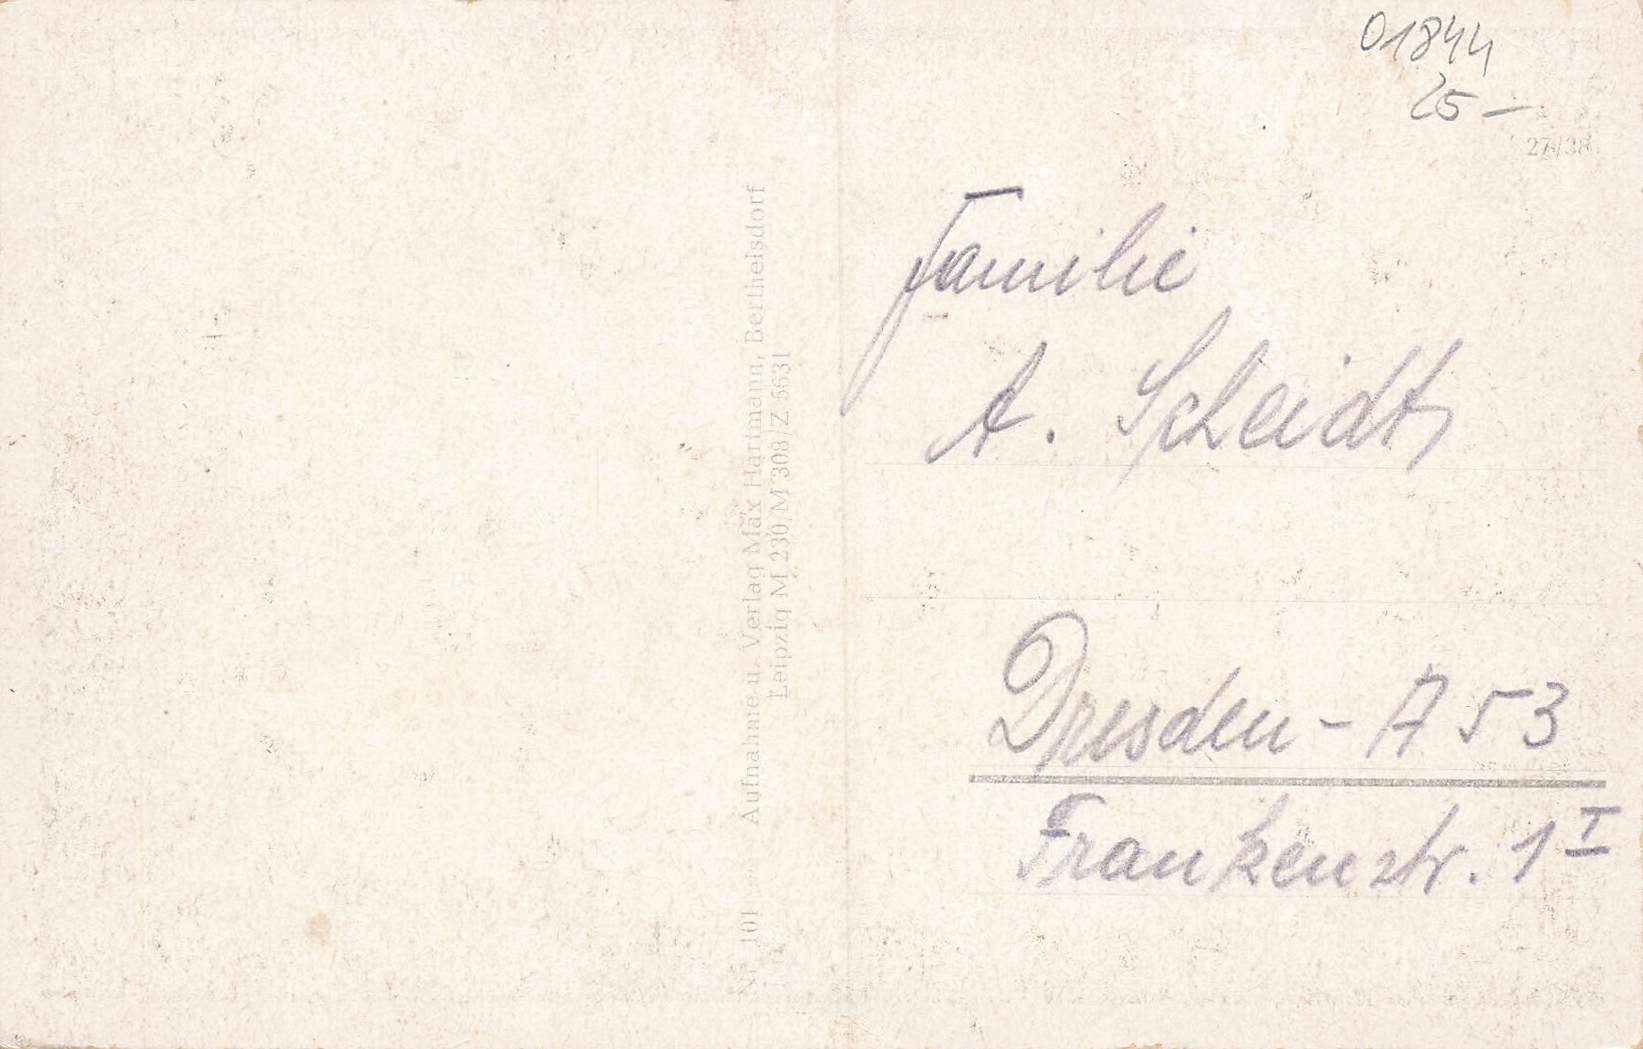 01844
25 –
27/38
Familie
A. Scheidt
Dresden - A 53
Frankenstr. 1 I
Nr. 101 Aufnahme u. Verlag Max Hartmann, Berthelsdorf
Leipzig M 230, M 308/Z 5631